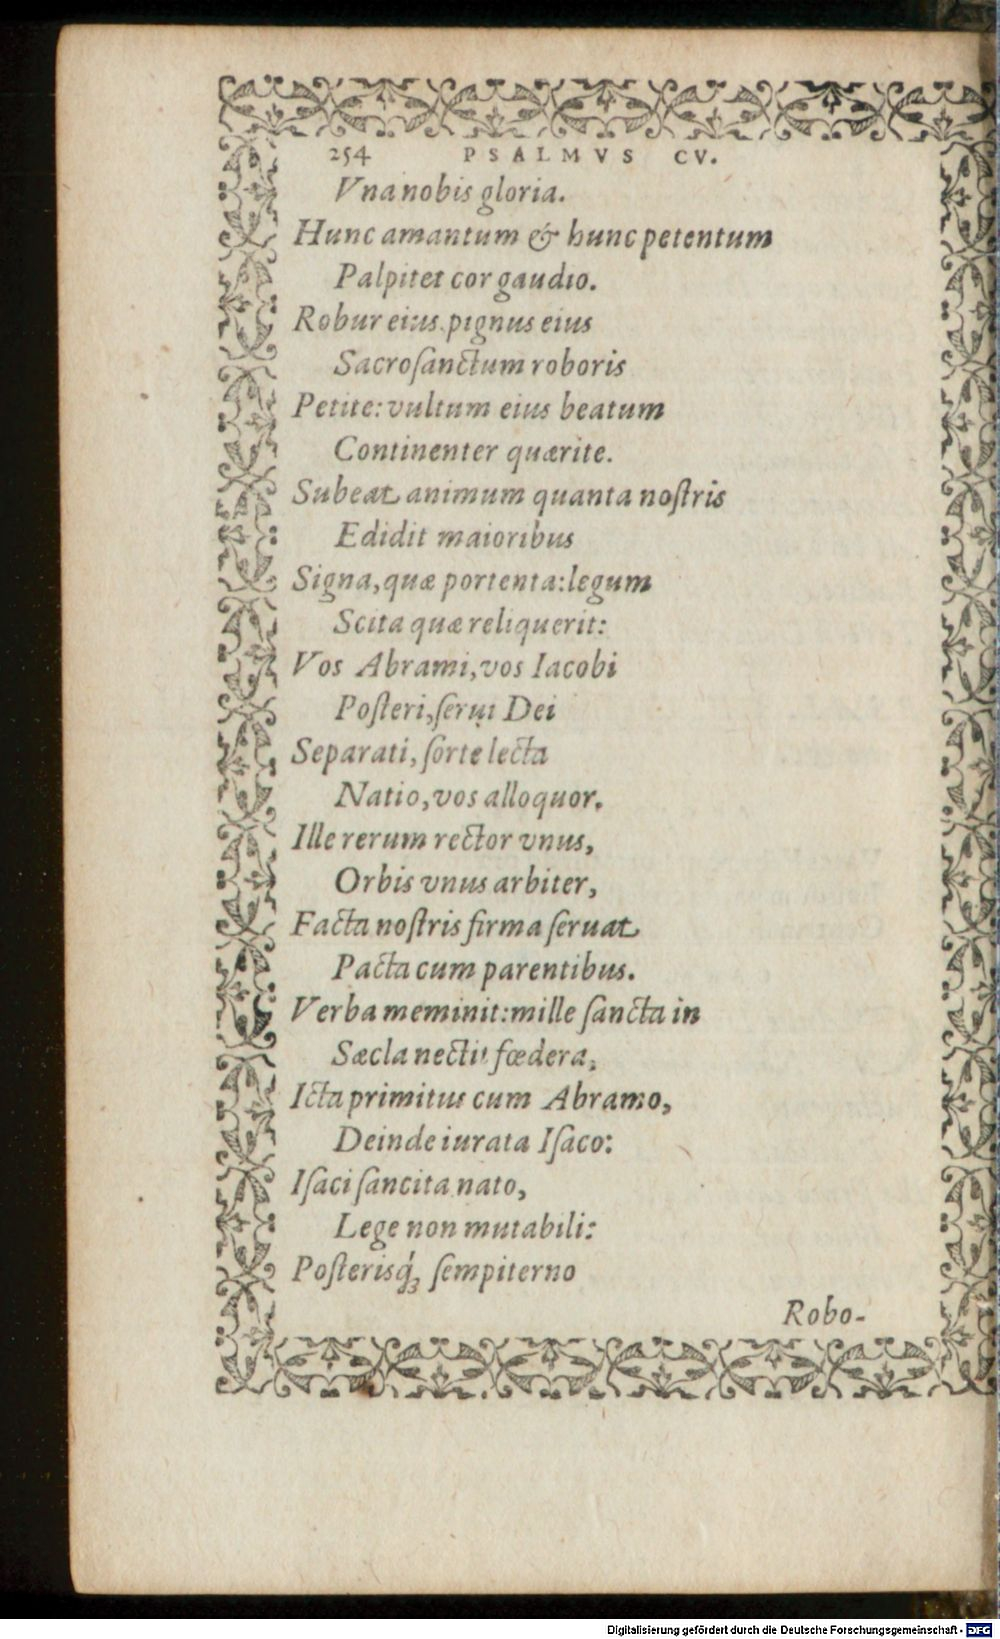 254 PSALMVS CV.
Vna nobis gloria.
Hunc amantum & hunc petentum
Palpitet cor gaudio.
Robur eius, pignus eius
Sacroſanctum roboris
Petite: vultum eius beatum
Continenter quærite.
Subeat animum quanta noſtris
Edidit maioribus
Signa, quæ portenta: legum
Scita quæ reliquerit:
Vos Abrami, vos Iacobi
Poſteri, ſerui Dei
Separati, ſorte lecta
Natio, vos alloquor.
Ille rerum rector vnus,
Orbis vnus arbiter,
Facta noſtris firma ſeruat
Pacta cum parentibus.
Verba meminit: mille ſancta in
Sæcla nectit fœdera,
Icta primitus cum Abramo,
Deinde iurata Iſaco:
Iſaci ſancita nato,
Lege non mutabili:
Poſterisq́ꝫ ſempiterno
Robo-
Digitalisierung gefördert durch die Deutsche Forschungsgemeinschaft - DFG